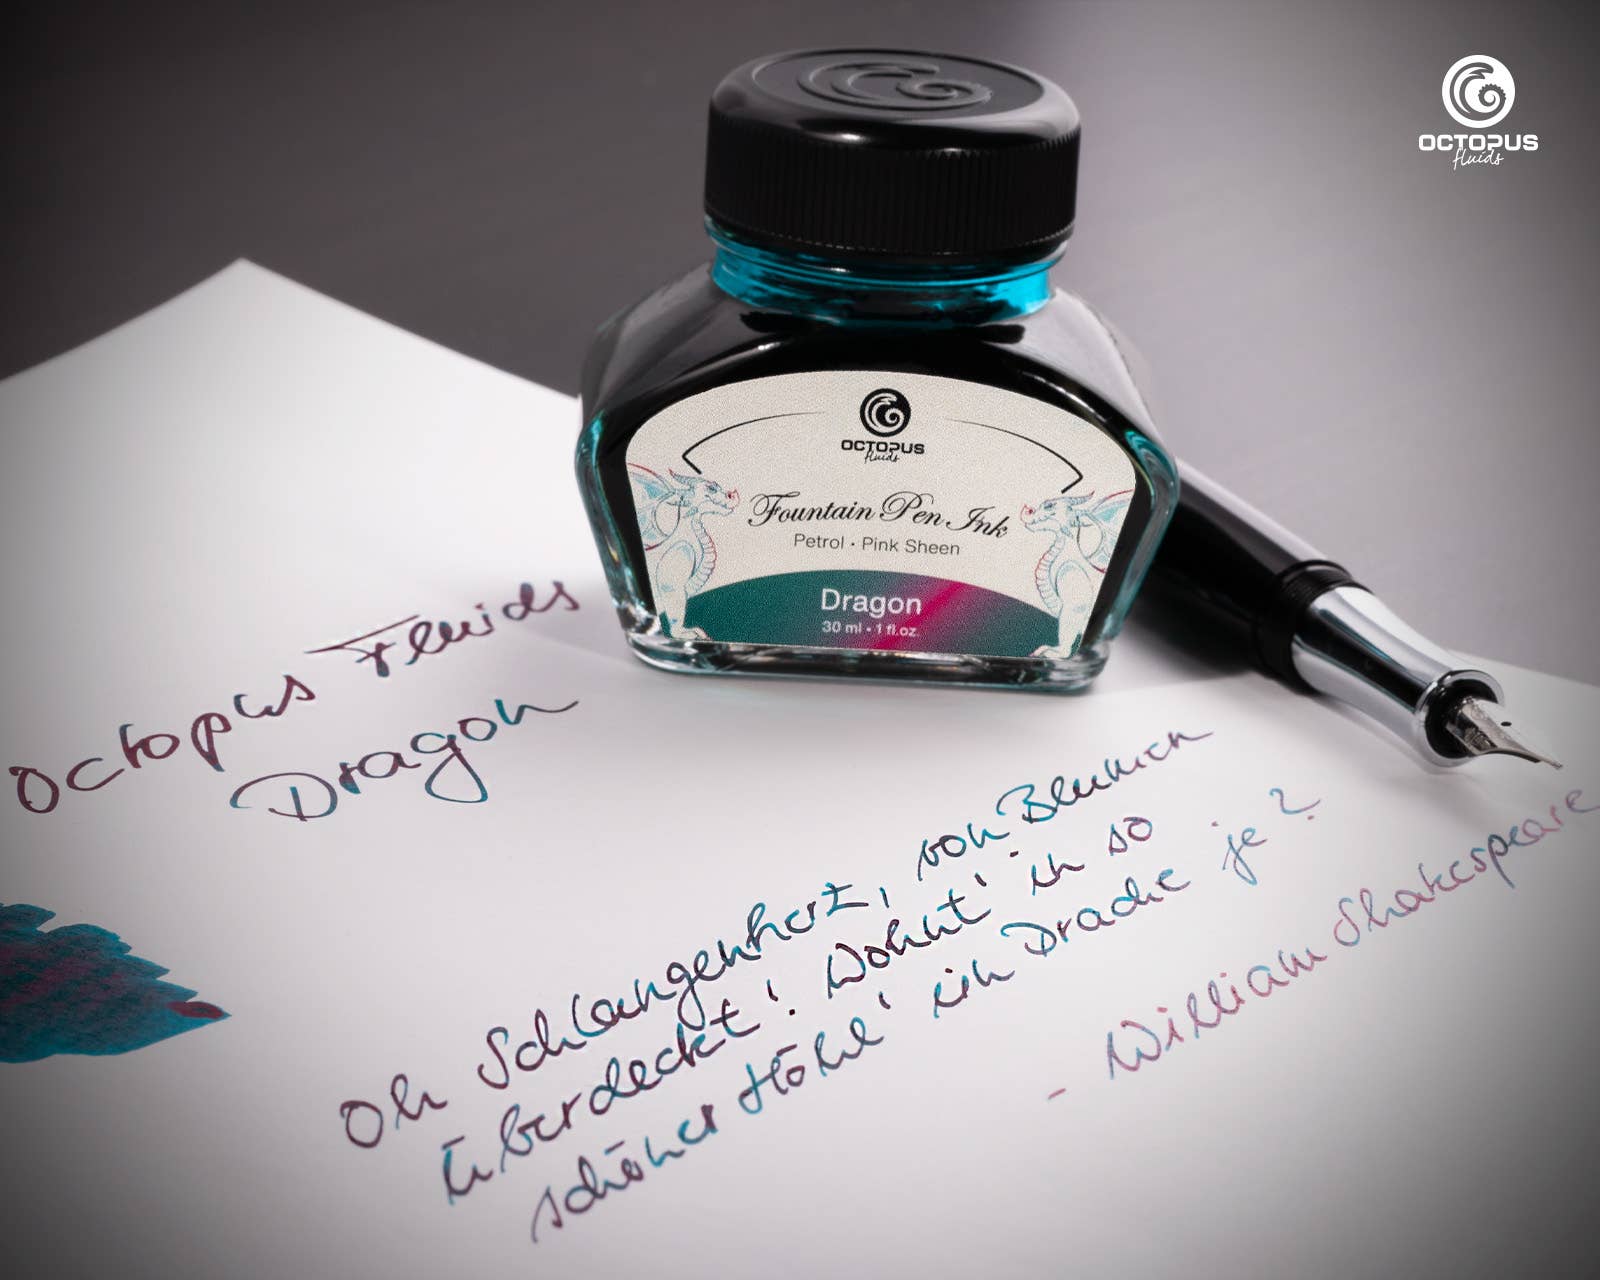 OCTOPUS
fluids
OCTOPUS
fluids
Fountain Pen Ink
Petrol • Pink Sheen
Dragon
30 ml • 1 fl.oz.
Octopus Fluids
Dragon
Oh Schlangenherz, von Blumen
überdeckt! Wohnt' in so
schöner Höhl' ein Drache je?
- William Shakespeare